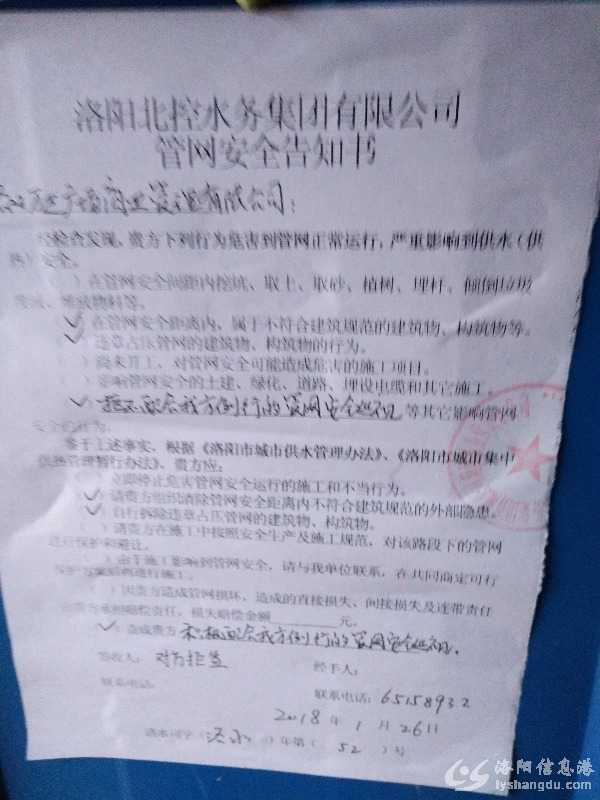 洛阳北控水务集团有限公司
管网安全告知书
万达广场商业管理有限公司：
经检查发现，贵方下列行为危害到管网正常运行，严重影响到供水（供
热）安全。
（ ）在管网安全间距内挖坑、取土、取砂、植树、埋杆、倾倒垃圾
废液、堆放物料等。
✓ 在管网安全距离内，属于不符合建筑规范的建筑物、构筑物等。
✓ 违章占压管网的建筑物、构筑物的行为。
（ ）尚未开工，对管网安全可能造成危害的施工项目。
（ ）影响管网安全的土建、绿化、道路、埋设电缆和其它施工。
✓ 拒不配合我方例行的管网安全巡视 等其它影响管网
安全的行为。
鉴于上述事实，根据《洛阳市城市供水管理办法》、《洛阳市城市集中
供热管理暂行办法》，贵方应：
（ ）立即停止危害管网安全运行的施工和不当行为。
✓ 请贵方组织消除管网安全距离内不符合建筑规范的外部隐患。
✓ 自行拆除违章占压管网的建筑物、构筑物。
（ ）请贵方在施工中按照安全生产及施工规范，对该路段下的管网
进行保护和避让。
（ ）由于施工影响到管网安全，请与我单位联系，在共同商定可行
保护方案后再进行施工。
（ ）因贵方造成管网损坏，造成的直接损失、间接损失及连带责任
由贵方承担赔偿责任，损失赔偿金额________元。
✓ 责成贵方 积极配合我方例行的管网安全巡视。
签收人： 对方拒签 经手人：
联系电话： 联系电话：65158932
2018 年 1 月 26日
洛水司字（ ）年第（ 52 ）号
洛阳信息港
lyshangdu.com